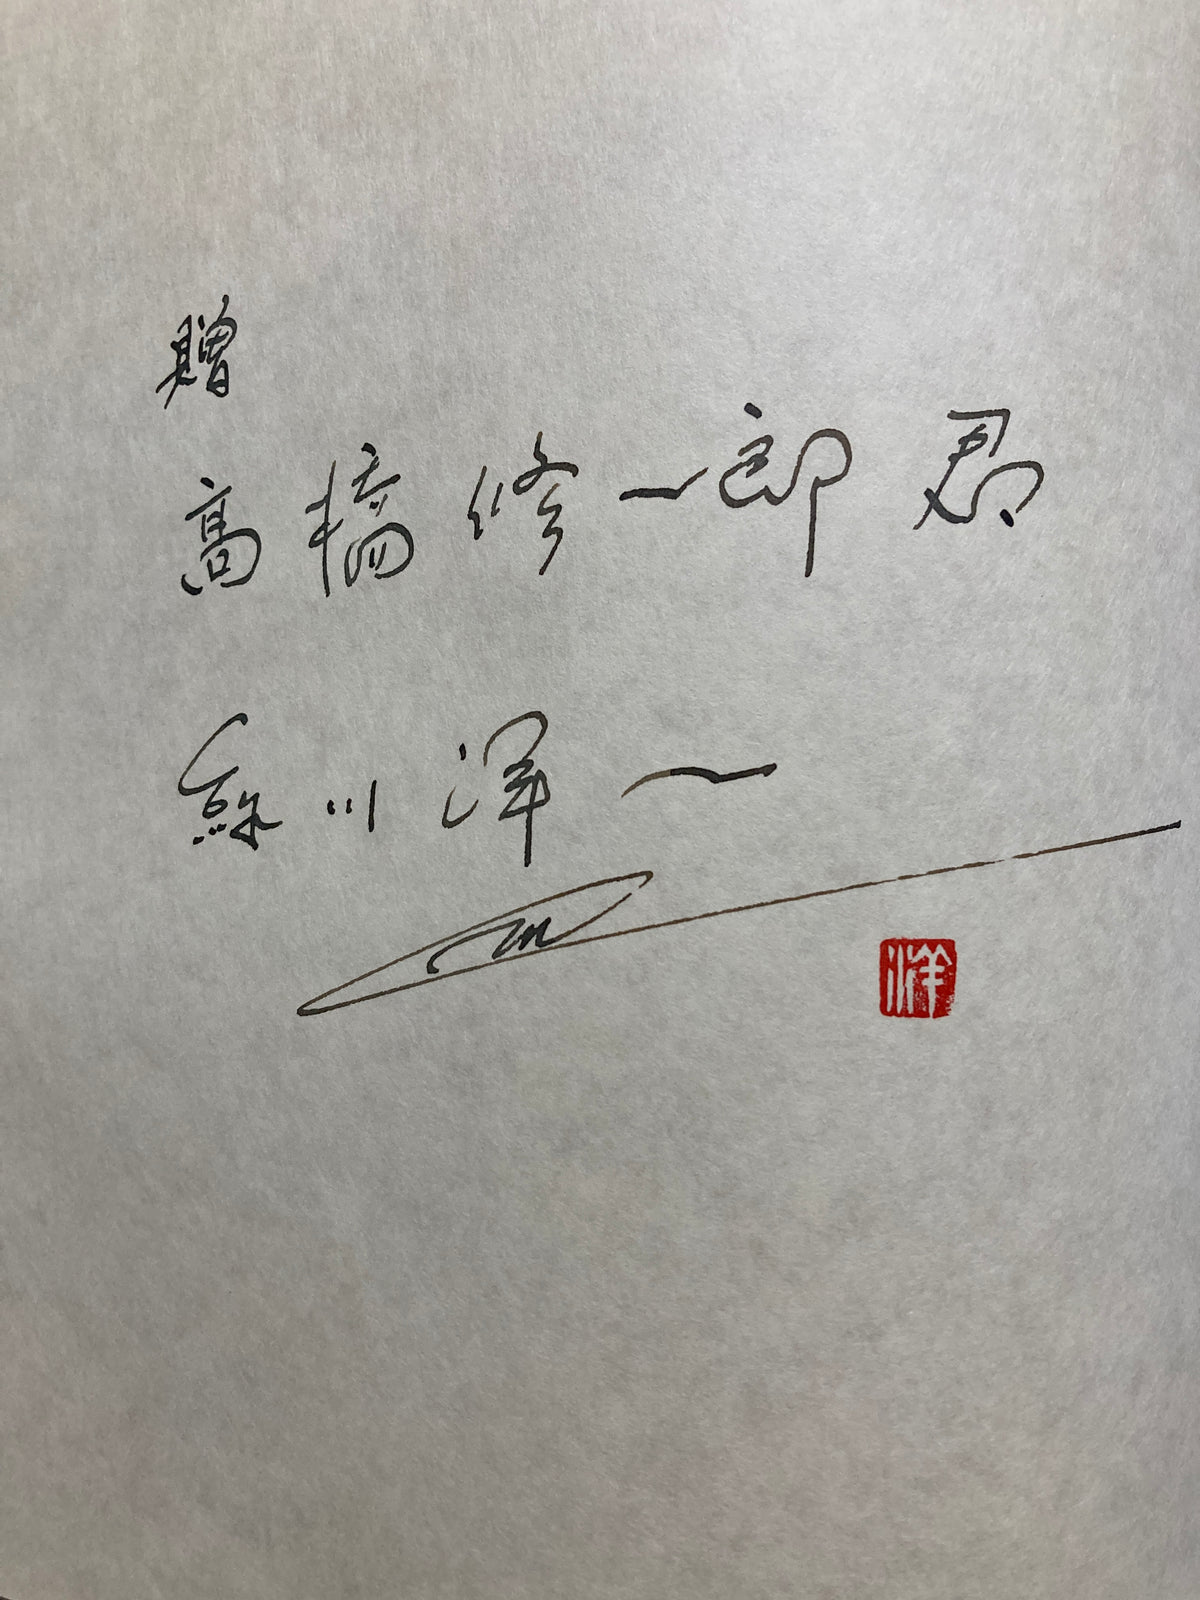 贈
高橋修一郎君
鮴川洋一
洋